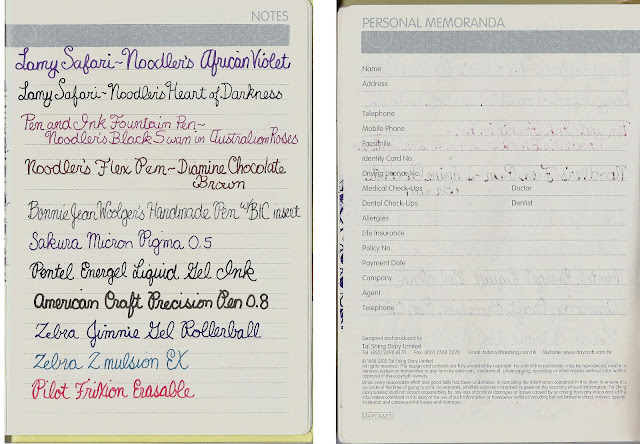 NOTES
Lamy Safari ~ Noodler's African Violet
Lamy Safari ~ Noodler's Heart of Darkness
Pen and Ink Fountain Pen ~
Noodler's Black Swan in Australian Roses
Noodler's Flex Pen ~ Diamine Chocolate
Brown
Bonnie Jean Woolger's Handmade Pen w/BIC insert
Sakura Micron Pigma 0.5
Pentel Energel Liquid Gel Ink
American Craft Precision Pen 0.8
Zebra Jimnie Gel Rollerball
Zebra Z mulsion EX
Pilot FriXion Erasable
PERSONAL MEMORANDA
Name
Address
Telephone
Mobile Phone
Facsimile
Identity Card No.
Driving Licence No.
Medical Check-Ups Doctor
Dental Check-Ups Dentist
Allergies
Life Insurance
Policy No.
Payment Date
Company
Agent
Telephone
Designed and produced by
Tai Shing Diary Limited
All rights reserved. The design and contents are fully protected by copyright. No part of this publication may be reproduced, used in a
DAYCRAFT